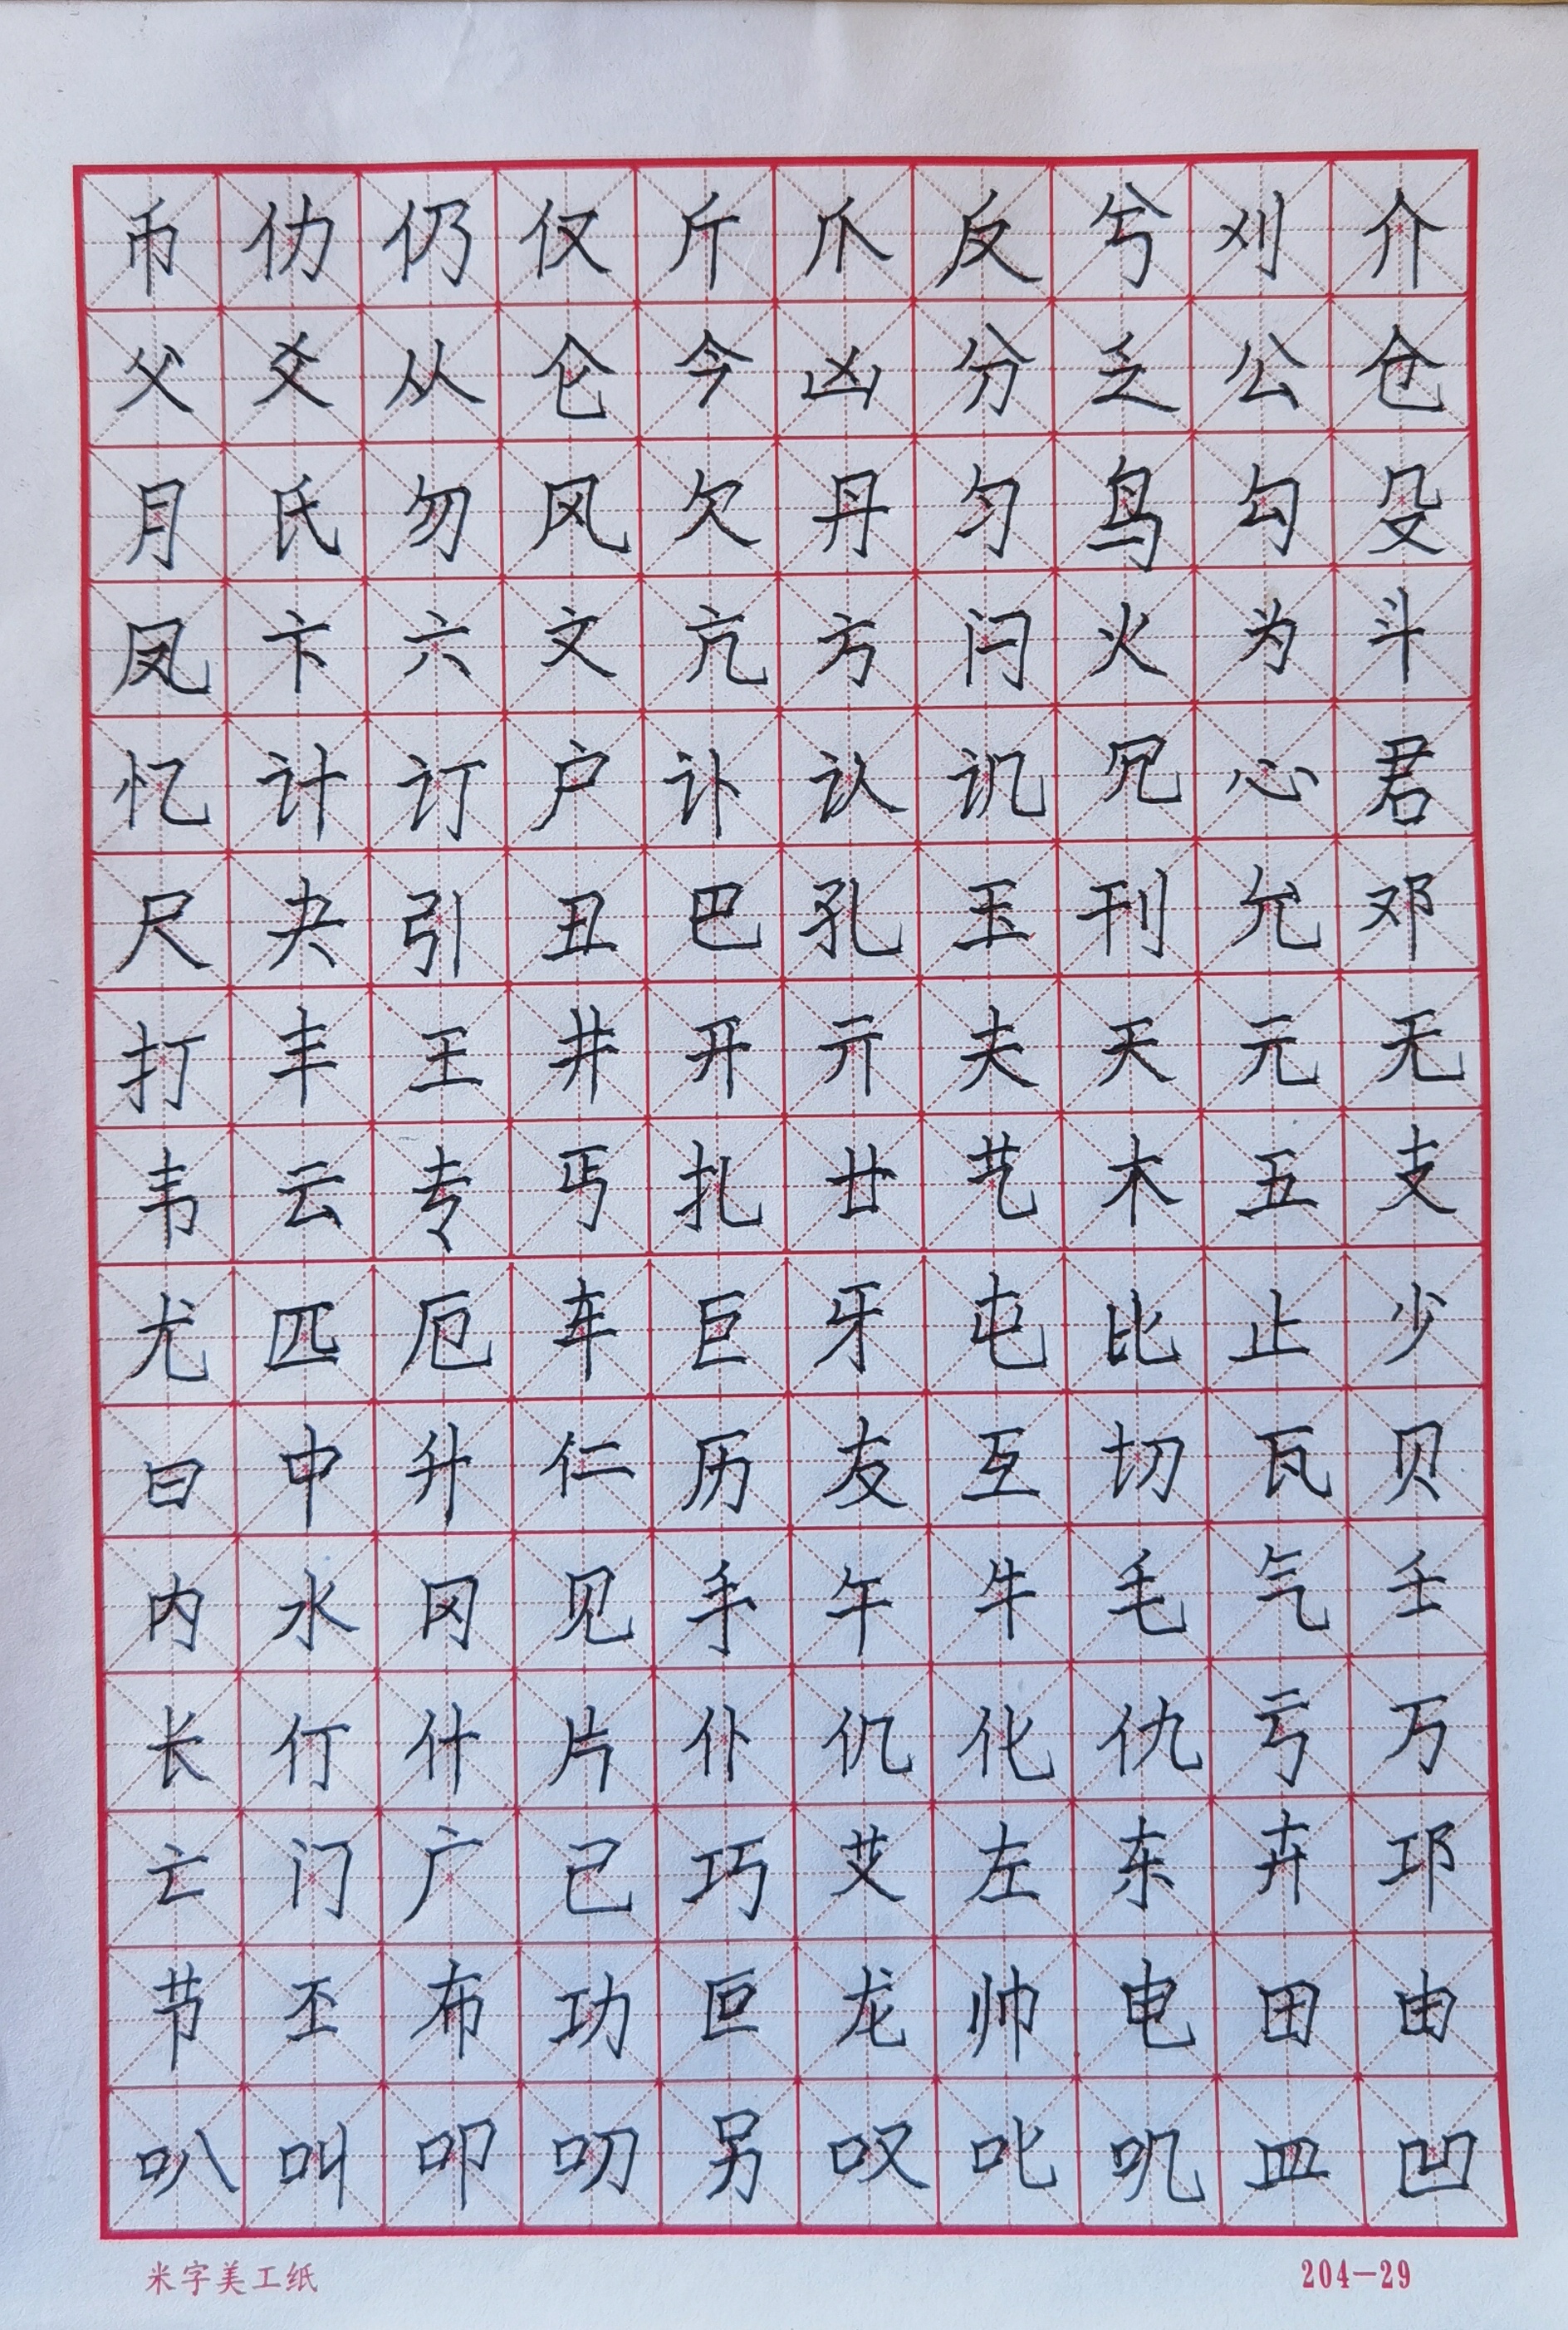 币仂仍仅斤爪反兮刈介
父爻从仑今凶分乏公仓
月氏勿风欠丹匀鸟勾殳
凤卞六文亢方闩火为斗
忆计订户讣认讥冗心君
尺夬引丑巴孔玉刊允邓
打丰王井开亓夫天元无
韦云专丐扎廿艺木五支
尤匹厄车巨牙屯比止少
曰中升仁历友互切瓦贝
内水冈见手午牛毛气壬
长仃什片仆仉化仇亏万
亡门广己巧艾左东卉邛
节丕布功叵龙帅电田由
叭叫叩叨另叹叱叽皿凹
米字美工纸
204-29